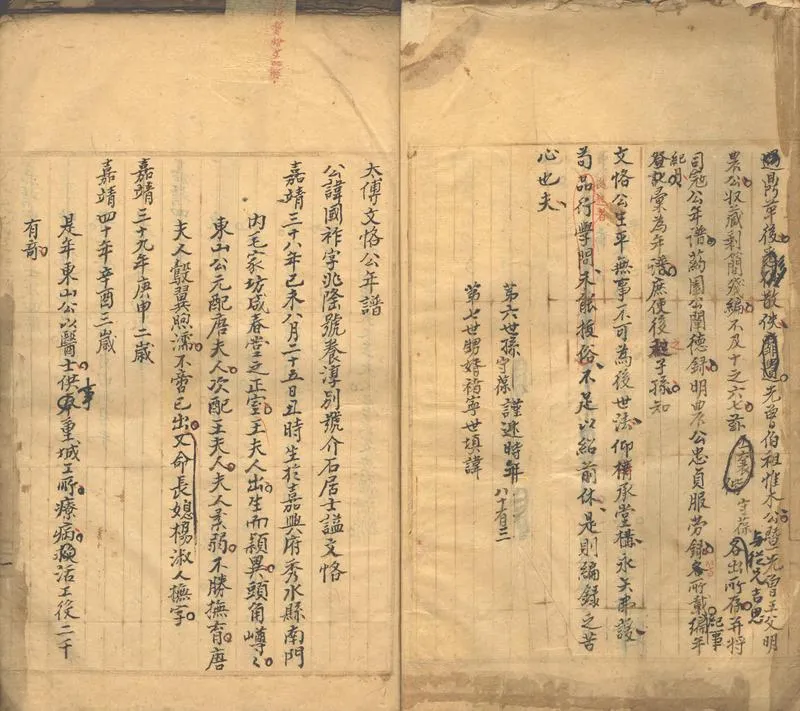 遇鼎革後散佚先曾伯祖惟木公暨先曾王父明
農公收藏剩簡殘編不及十之六七茲守葆與從兄吉思各出所存并將
司寇公年譜葯園公闡德錄明農公忠貞服勞錄各所載編年紀事
彙為年譜庶使後之子孫知
文恪公生平無事不可為後世法仰構承堂構永矢弗諼
苟品行學問不能拔俗不足以紹前休是則編錄之苦
心也夫
第六世孫守葆謹述時年八十有三
第七世甥婿褚寧世填諱
太傅文恪公年譜
公諱國祚字兆隆號養淳別號介石居士謚文恪
嘉靖三十八年己未八月二十五日丑時生於嘉興府秀水縣南門
內毛家坊咸春堂之正室王夫人出生而穎異頭角嶟嶟
東山公元配唐夫人次配王夫人夫人素弱不勝撫育唐
夫人鷇翼煦濡不啻己出又命長媳楊淑人撫字
嘉靖三十九年庚申二歲
嘉靖四十年辛酉三歲
是年東山公以醫士供事重城工所療病痊活工役二千
有奇